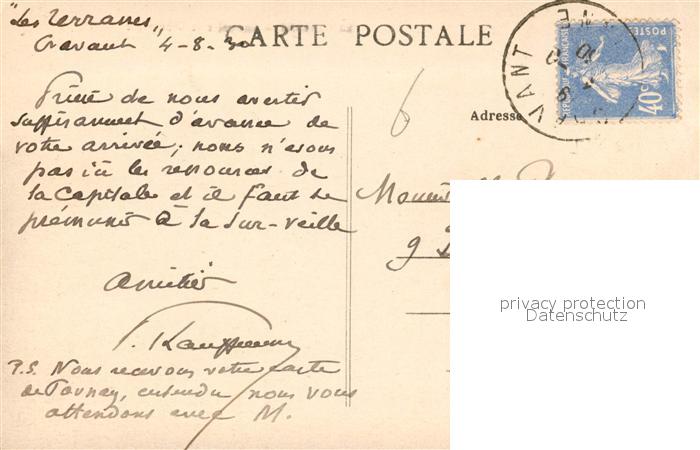 "Les Terrasses"
Cravant 4-8-30
CARTE POSTALE
Prière de nous avertir
suffisamment d'avance de
votre arrivée; nous n'avons
pas ici les ressources de
la Capitale et il faut se
prémunir à la sur-veille
Amitiés
Kauffmann
P.S. Nous recevons votre carte
de Tournay, entendu nous vous
attendons avec M.
6
Adresse
9
CRAVANT
POSTES
REPUBLIQUE FRANÇAISE
40c
privacy protection
Datenschutz